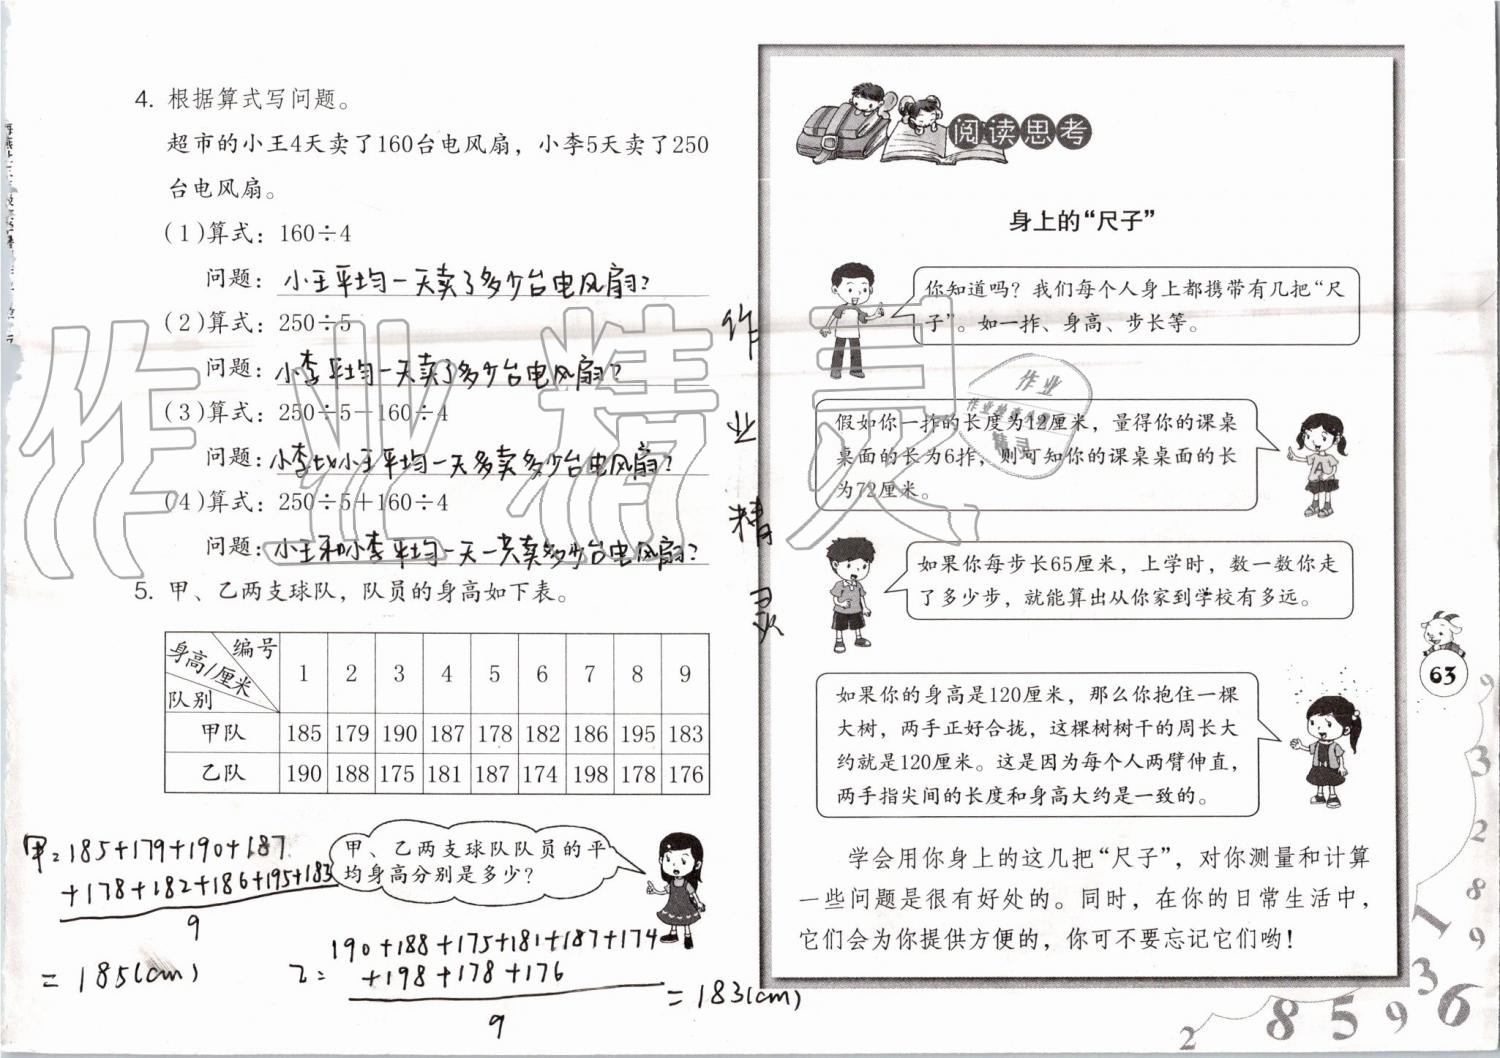 4. 根据算式写问题。
超市的小王4天卖了160台电风扇，小李5天卖了250
台电风扇。
(1)算式：160÷4
问题：小王平均一天卖了多少台电风扇?
(2)算式：250÷5
问题：小李平均一天卖了多少台电风扇?
(3)算式：250÷5－160÷4
问题：小李比小王平均一天多卖多少台电风扇?
(4)算式：250÷5＋160÷4
问题：小王和小李平均一天一共卖多少台电风扇?
5. 甲、乙两支球队，队员的身高如下表。
身高/厘米 编号 队别 1 2 3 4 5 6 7 8 9
甲队 185 179 190 187 178 182 186 195 183
乙队 190 188 175 181 187 174 198 178 176
甲、乙两支球队队员的平
均身高分别是多少?
甲=185+179+190+187
+178+182+186+195+183
9
=185(cm)
乙=190+188+175+181+187+174
+198+178+176
9
=183(cm)
作业精灵
作业精灵
作业
精灵
阅读思考
身上的“尺子”
你知道吗？我们每个人身上都携带有几把“尺
子”。如一拃、身高、步长等。
假如你一拃的长度为12厘米，量得你的课桌
桌面的长为6拃，则可知你的课桌桌面的长
为72厘米。
如果你每步长65厘米，上学时，数一数你走
了多少步，就能算出从你家到学校有多远。
如果你的身高是120厘米，那么你抱住一棵
大树，两手正好合拢，这棵树树干的周长大
约就是120厘米。这是因为每个人两臂伸直，
两手指尖间的长度和身高大约是一致的。
学会用你身上的这几把“尺子”，对你测量和计算
一些问题是很有好处的。同时，在你的日常生活中，
它们会为你提供方便的，你可不要忘记它们哟！
63
9
3
2
8
1
9
3
6
9
5
8
2